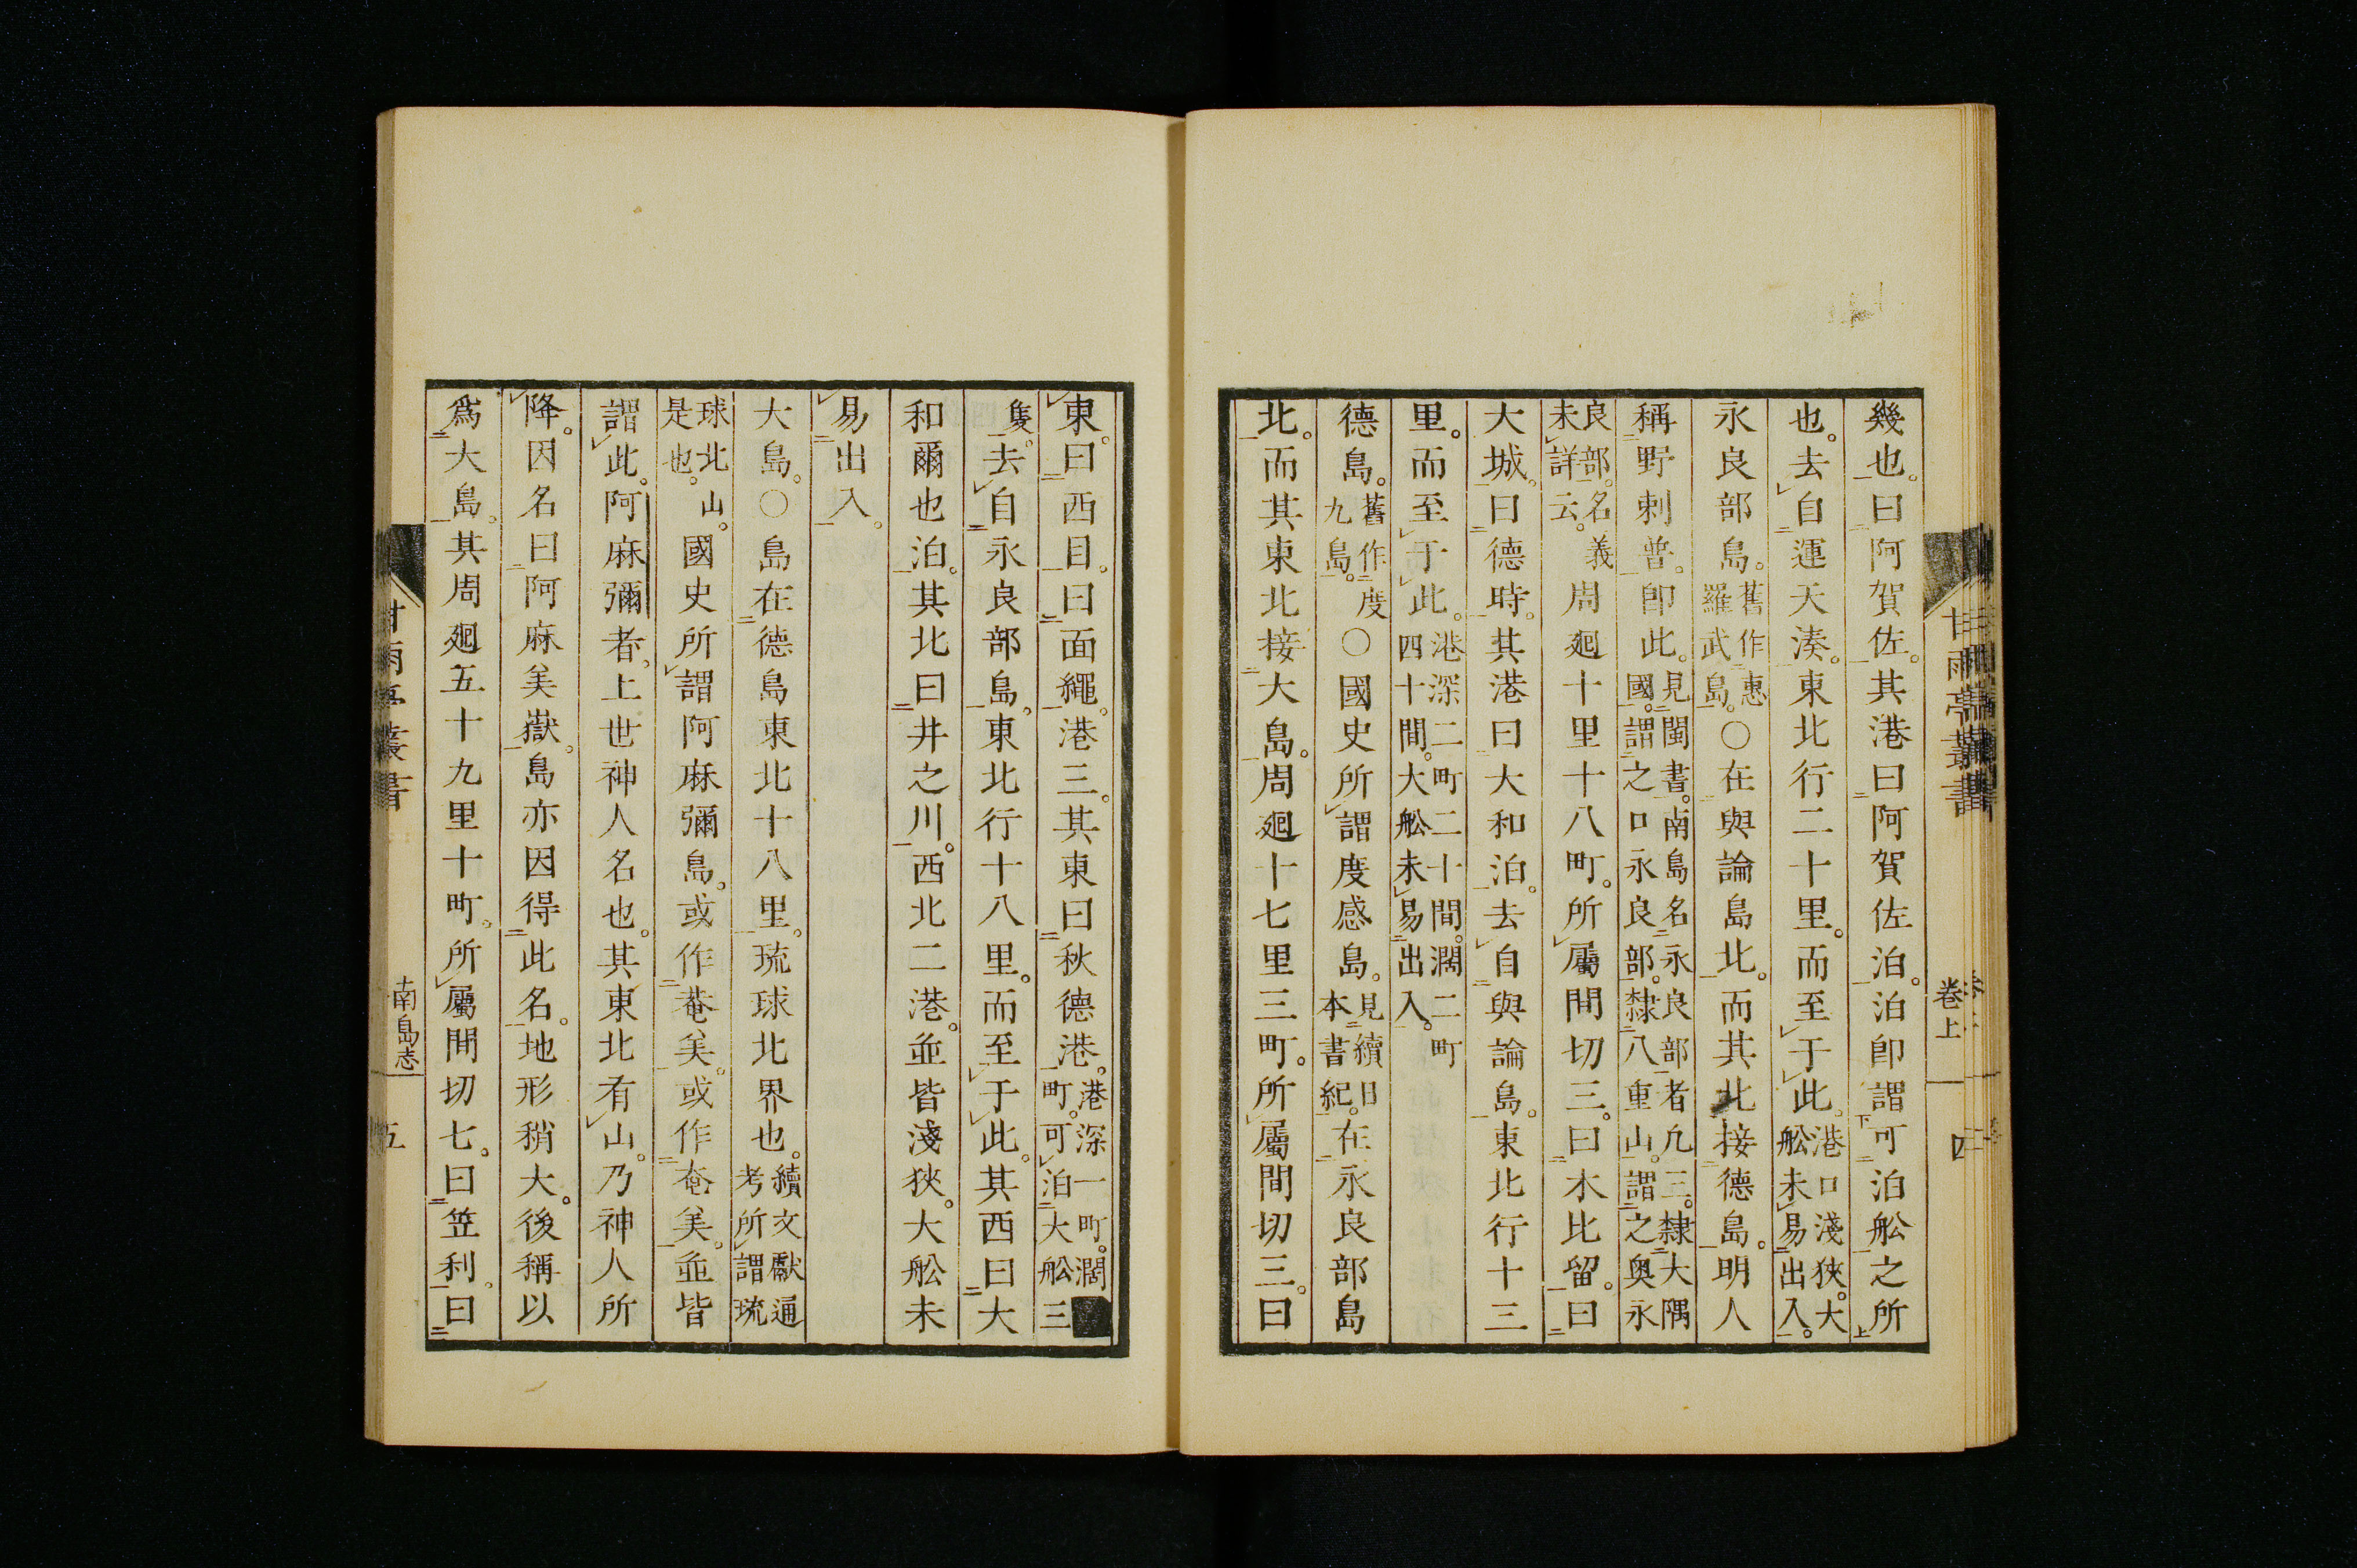 幾也。曰阿賀佐。其港曰阿賀佐泊。泊卽謂可泊舩之所
也。去自運天湊。東北行二十里。而至于此。港口淺狹。大舩未易出入。
永良部島。舊作惠羅武島。○在與論島北。而其北接德島。明人
稱野剌普。卽此。見閩書。南島名永良部者凢三。隸大隅國。謂之口永良部。隸八重山。謂之奥永
良部。名義未詳云。周廻十里十八町。所屬間切三。曰木比留。曰
大城。曰德時。其港曰大和泊。去自與論島。東北行十三
里。而至于此。港深二町二十間。濶二町四十間。大舩未易出入。
德島。舊作度九島。○國史所謂度感島。見續日本書紀。在永良部島
北。而其東北接大島。周廻十七里三町。所屬間切三。曰
甘雨亭叢書
卷上
四
東。曰西目。曰面繩。港三。其東曰秋德港。港深一町。濶■町。可泊大舩三
隻。去自永良部島。東北行十八里。而至于此。其西曰大
和爾也泊。其北曰井之川。西北二港。並皆淺狹。大舩未
易出入。
大島。○島在德島東北十八里。琉球北界也。續文獻通考所謂琉
球北山。是也。國史所謂阿麻彌島。或作菴美。或作奄美。並皆
謂此。阿麻彌者。上世神人名也。其東北有山。乃神人所
降。因名曰阿麻美嶽。島亦因得此名。地形稍大。後稱以
爲大島。其周廻五十九里十町。所屬間切七。曰笠利。曰
甘雨亭叢書
南島志
五